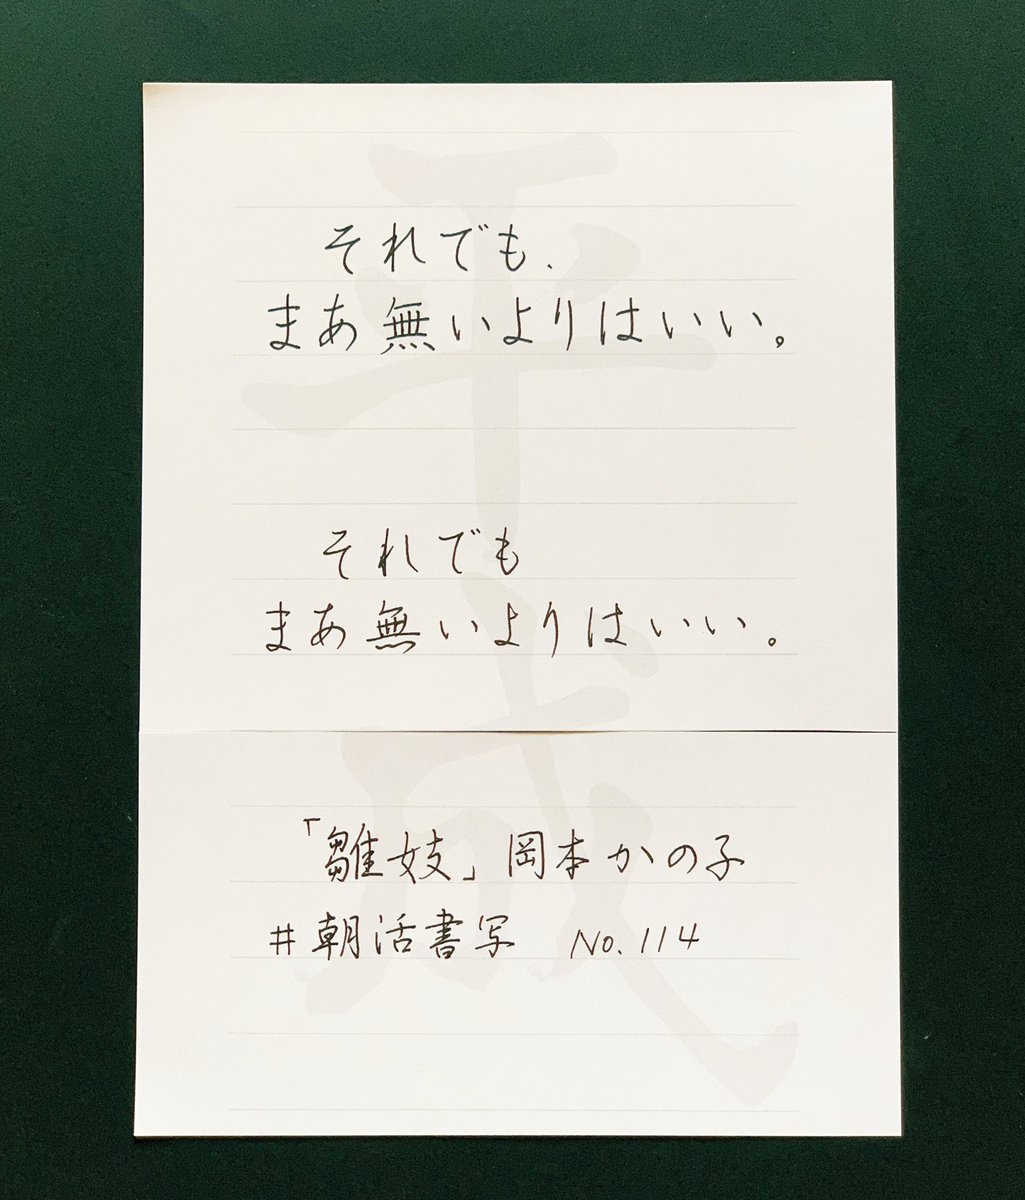 それでも、
まあ無いよりはいい。
それでも
まあ無いよりはいい。
「雛妓」岡本かの子
#朝活書写 No.114
平成